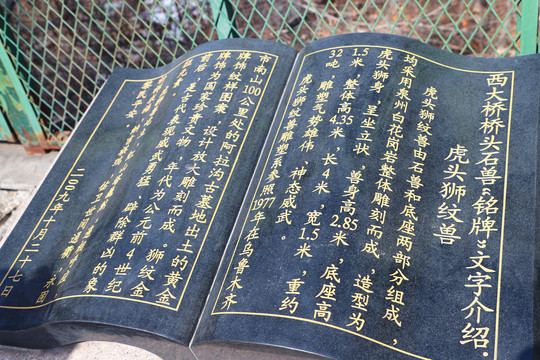 西大桥桥头石兽“铭牌”文字介绍：
虎头狮纹兽
虎头狮纹兽由石兽和底座两部分组成，
均采用泉州白花岗岩整体雕刻而成，造型为
虎头狮身，呈坐立状，兽身高2.85米，底座高
1.5米，整体高4.35米，长4米，宽1.5米，重约
32吨，雕塑气势雄伟，神态威武。
虎头狮纹兽雕塑系参照1977年在乌鲁木齐
市南山100公里处的阿拉沟古墓地出土的黄金
牌饰纹样图案，设计放大雕刻而成。狮纹金
牌饰为国家珍贵文物，年代为公元前4世纪
前后，是古代表现威武勇猛，辟除群凶的象
二〇一九年十月二十七日